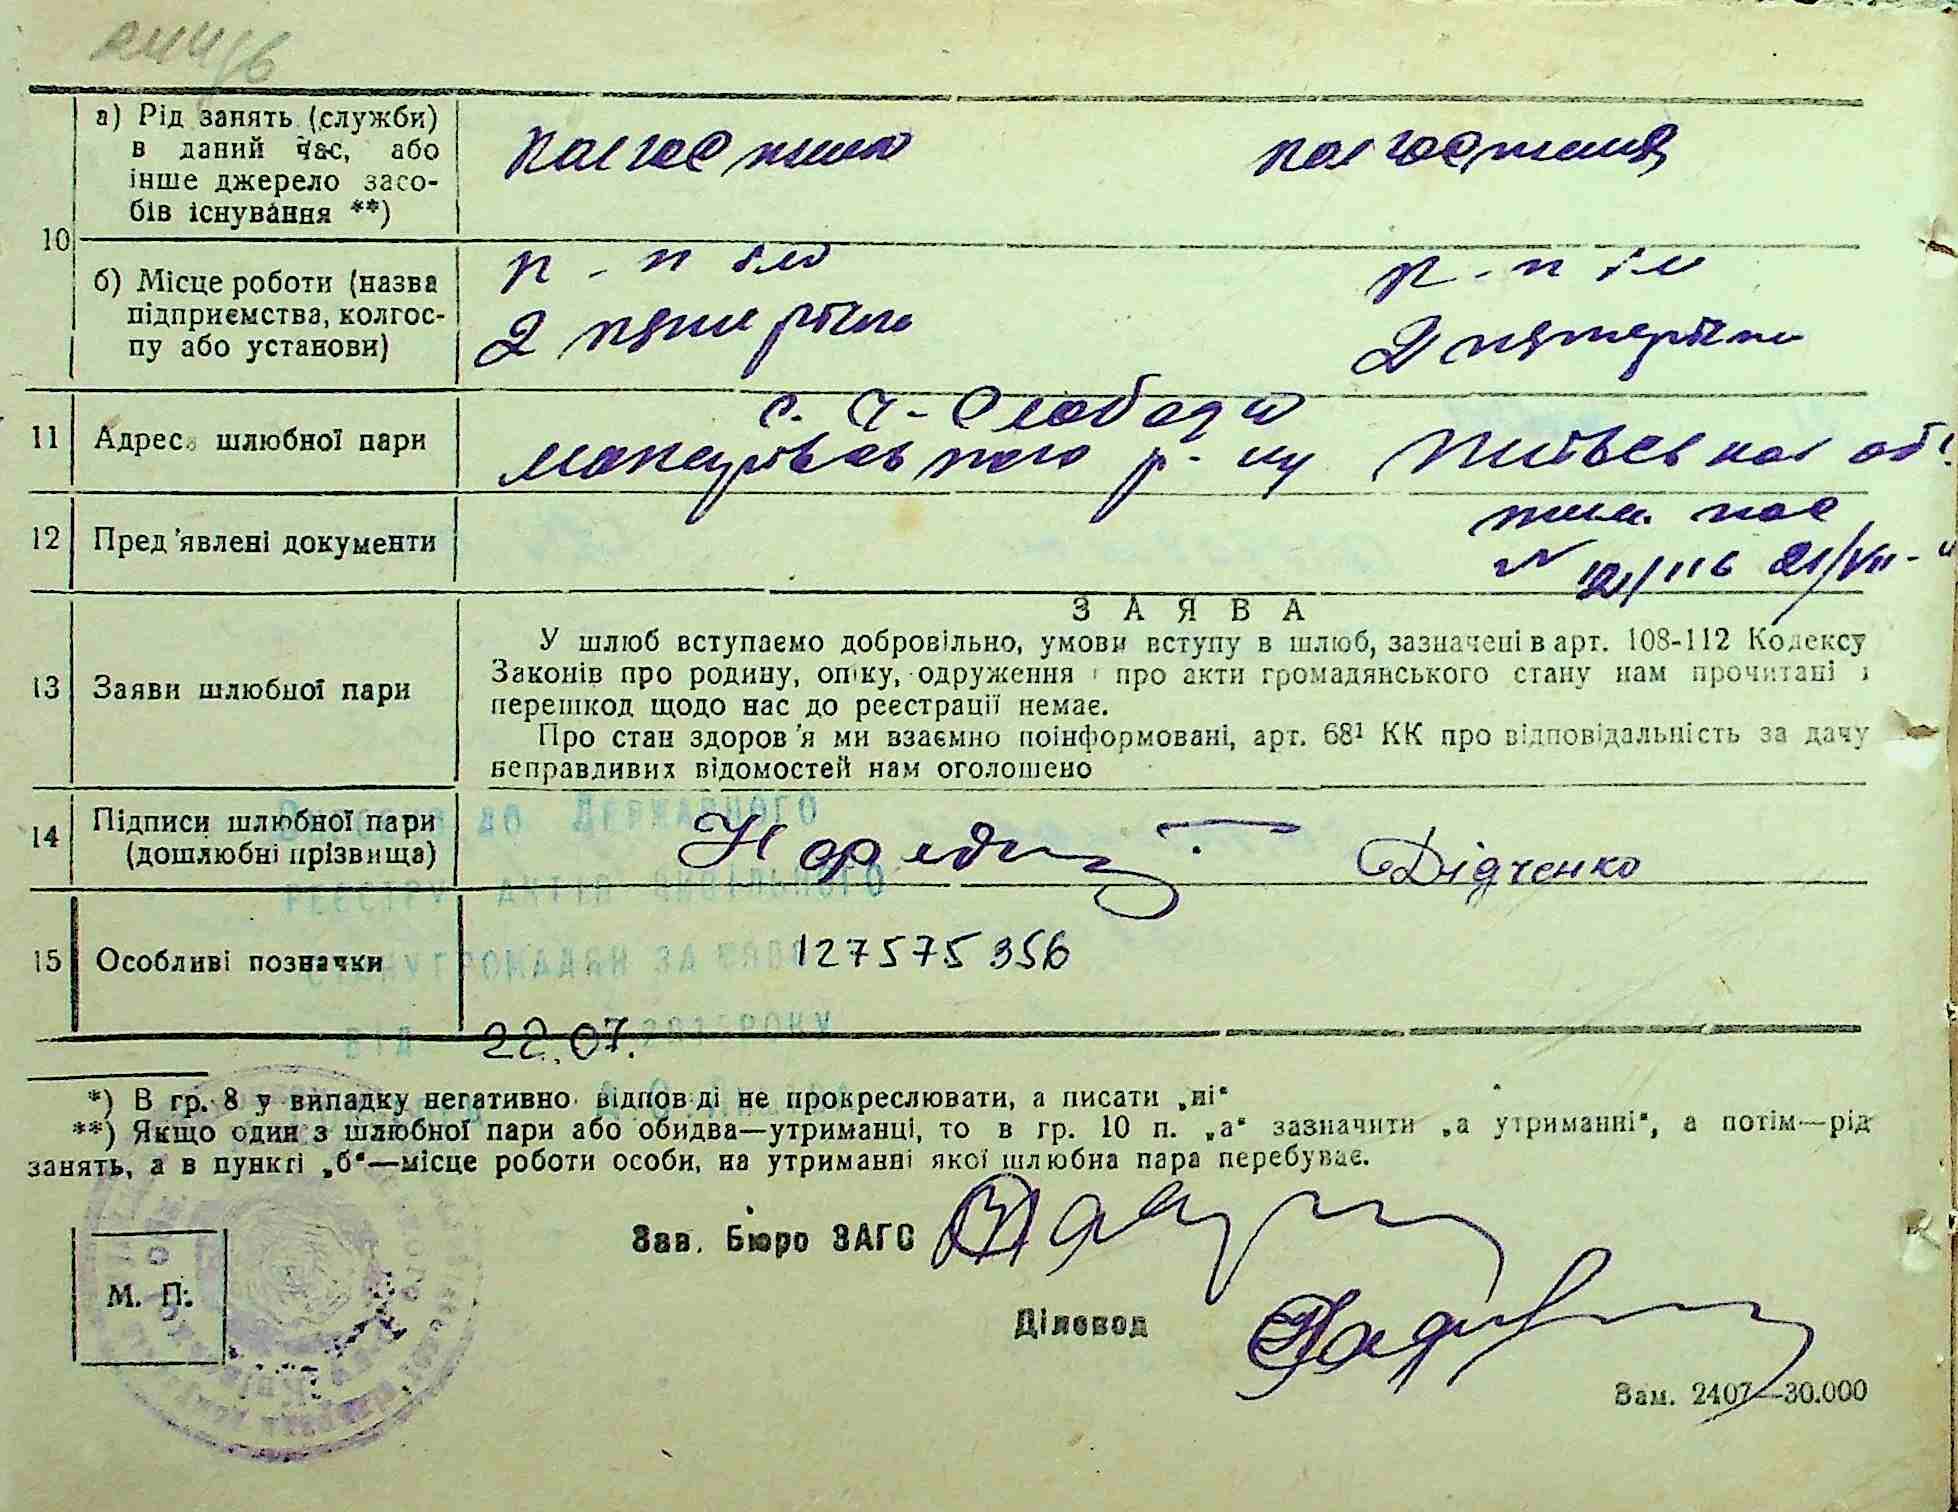 10
а) Рід занять (служби)
в даний час, або
інше джерело засо-
бів існування **)
колгоспник колгоспниця
б) Місце роботи (назва
підприємства, колгос-
пу або установи)
к-п ім к-п ім
2 пятирічки 2 пятирічки
11 Адреса шлюбної пари
с. Ч-Слобода
Макарівського р-ну Київської обл.
12 Пред'явлені документи
пас
№ 21/VII-
13 Заяви шлюбної пари
ЗАЯВА
У шлюб вступаємо добровільно, умови вступу в шлюб, зазначені в арт. 108-112 Кодексу
Законів про родину, опіку, одруження і про акти громадянського стану нам прочитані і
перешкод щодо нас до реєстрації немає.
Про стан здоров'я ми взаємно поінформовані, арт. 68¹ КК про відповідальність за дачу
неправдивих відомостей нам оголошено
14 Підписи шлюбної пари
(дошлюбні прізвища)
Дідченко
до Державного
реєстру актів цивільного
стану громадян за
15 Особливі позначки
127575356
від 22.07. року
*) В гр. 8 у випадку негативно відпов ді не прокреслювати, а писати „ні“
**) Якщо один з шлюбної пари або обидва—утриманці, то в гр. 10 п. „а“ зазначити „а утриманні“, а потім—рід
занять, а в пункті „б“—місце роботи особи, на утриманні якої шлюбна пара перебуває.
Зав. Бюро ЗАГС
М. П.
Діловод
Зам. 2407—30.000